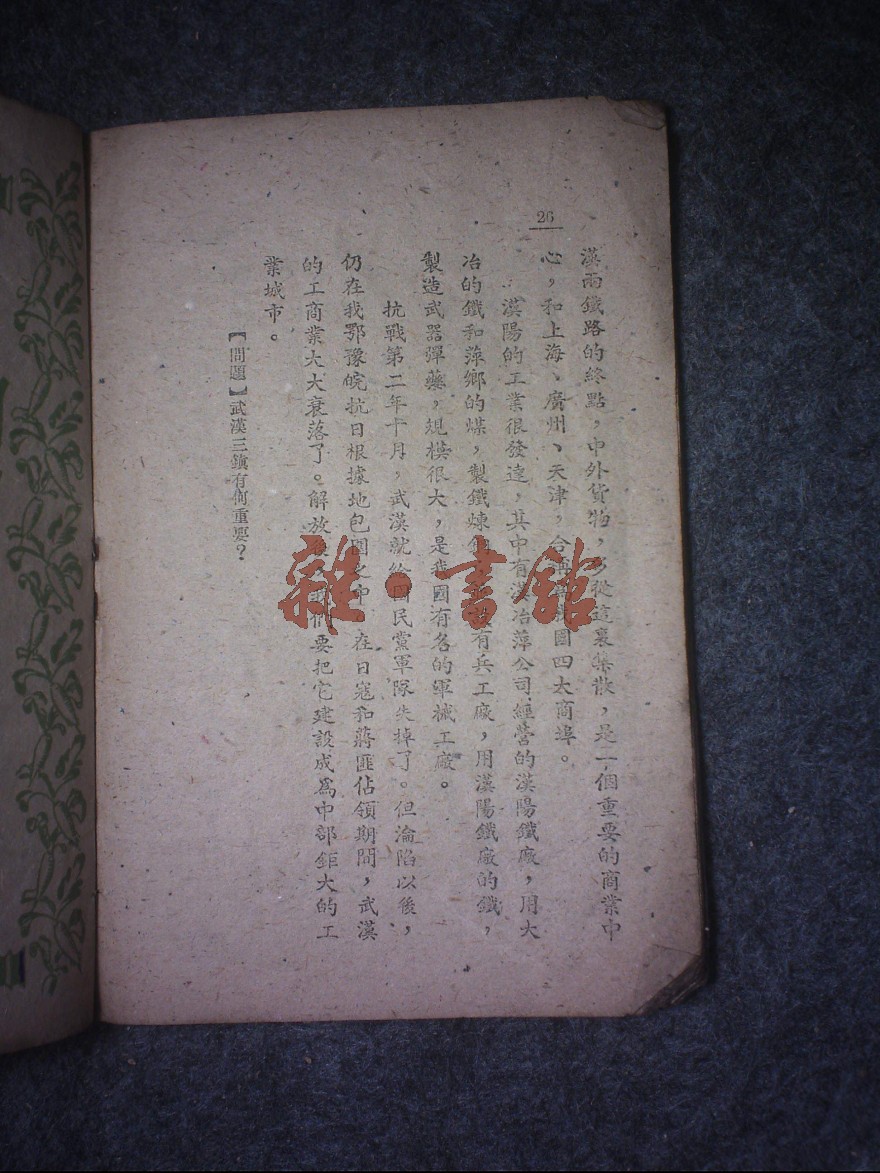 26
漢兩鐵路的終點，中外貨物，多從這裏集散，是一個重要的商業中
心，和上海、廣州、天津，合稱我國四大商埠。
漢陽的工業很發達，其中有漢冶萍公司經營的漢陽鐵廠，用大
冶的鐵和萍鄉的煤，製鐵煉鋼 有兵工廠，用漢陽鐵廠的鐵，
製造武器彈藥，規模很大，是我國有名的軍械工廠。
抗戰第二年十月，武漢就給國民黨軍隊失掉了。但淪陷以後，
仍在我鄂豫皖抗日根據地包圍之中 在日寇和蔣匪佔領期間，武漢
的工商業大大衰落了。解放 我們要把它建設成爲中部鉅大的工
業城市。
【問題】武漢三鎮有何重要？
雜·書館